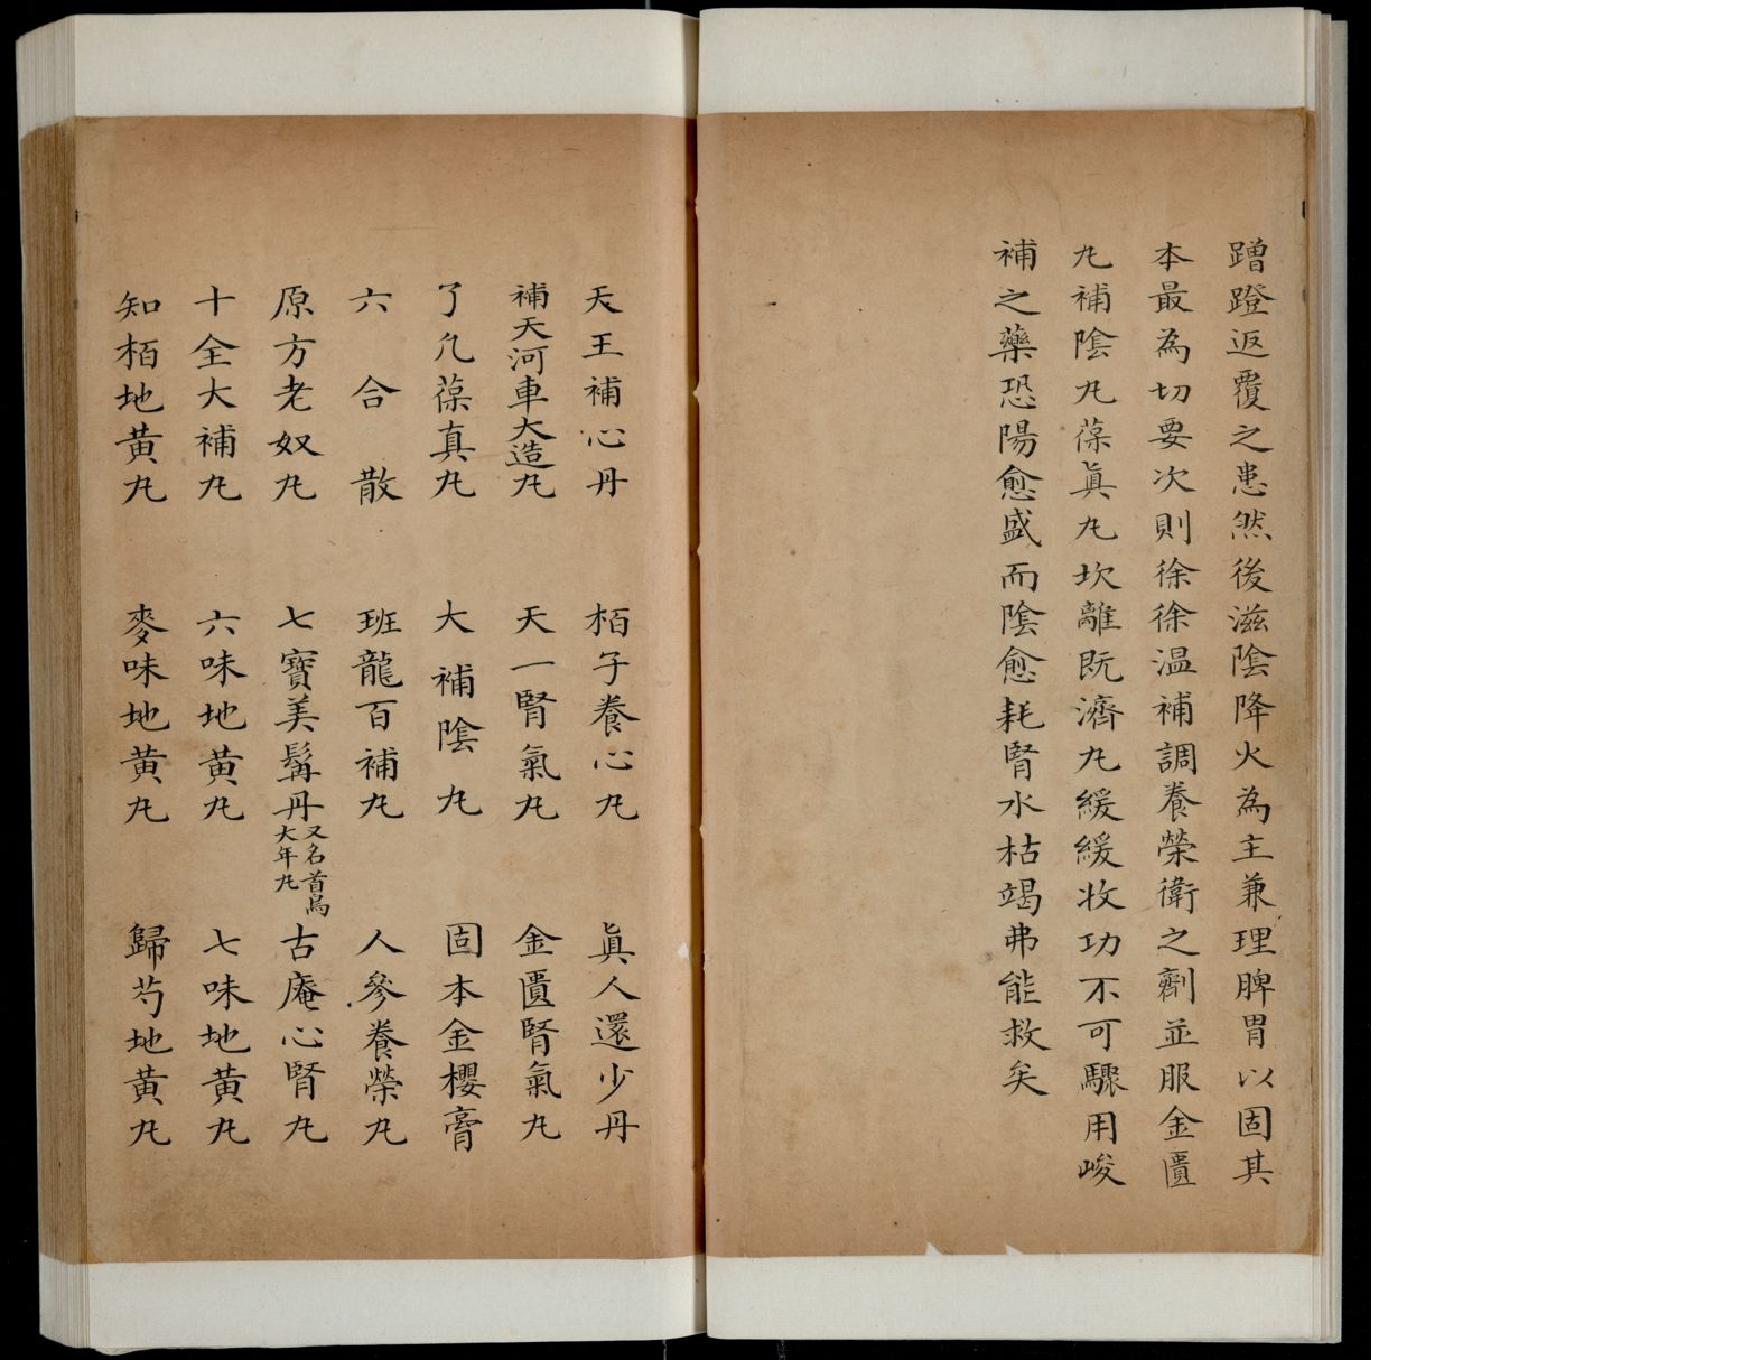 蹭蹬返覆之患然後滋陰降火為主兼理脾胃以固其
本最為切要次則徐徐温補調養榮衛之劑並服金匱
丸補陰丸葆眞丸坎離既濟丸緩緩收功不可驟用峻
補之藥恐陽愈盛而陰愈耗腎水枯竭弗能救矣
天王補心丹 栢子養心丸 眞人還少丹
補天河車大造丸 天一腎氣丸 金匱腎氣丸
了凡葆真丸 大補陰丸 固本金櫻膏
六合散 班龍百補丸 人參養榮丸
原方老奴丸 七寶美髯丹又名首烏大年丸 古庵心腎丸
十全大補丸 六味地黄丸 七味地黄丸
知栢地黄丸 麥味地黄丸 歸芍地黄丸